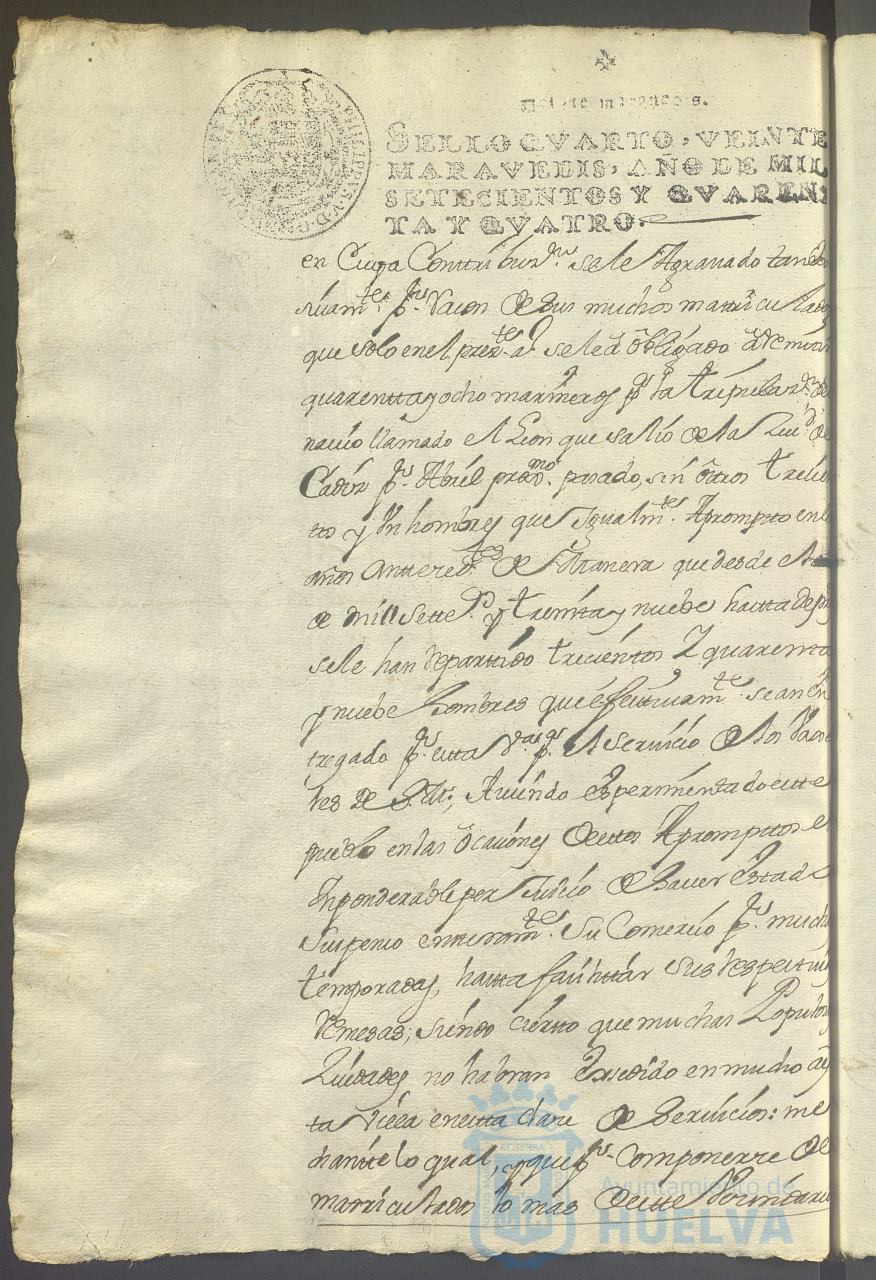 Veinte maravedis.
SELLO QVARTO, VEINTE
MARAVEDIS, AÑO DE MIL
SETECIENTOS Y QVAREN
TA Y QVATRO.
PHILIPPUS V D G
en Cuya Contribuz.n se le Agravado tan
p.r Razon de sus muchos matriculados
que solo en el pres.te a.o se le á óbligado á Remitir
quarentta y ocho marineros p.a la tripulaz.n de
navio llamado el Leon que salió de la Ziu.d de
Cadiz p.r Abril prox.mo pasado, sin óttros trecien
tto y Un hombres que Igualm.te Apromptto en lo
años antteced.tes de Manera que desde el
de mill Sette.s y treintta y nuebe hasta de
se le han Repartido trecientos y quarenta
y nuebe hombres que efectivam.te se an en
tregado p.r esta V.a p.a el servicio de los Vaxe
les de S. M.; Aviendo esperimentado este
pueblo en las ócasiones de estos Apromptos el
Inponderable perjuicio de haver estado
suspenso entteram.te su Comercio p.r mucha
temporadas, hasta facilittar sus respectivas
Remesas; siendo cierto que muchas Populosas
Ziudades no habran Exsedido en mucho á es
ta Villa en esta clase de Servicios: me
diante lo qual, y que p.r Componerse de
matriculados lo mas de este Vecindario
Ayuntamiento de
HUELVA